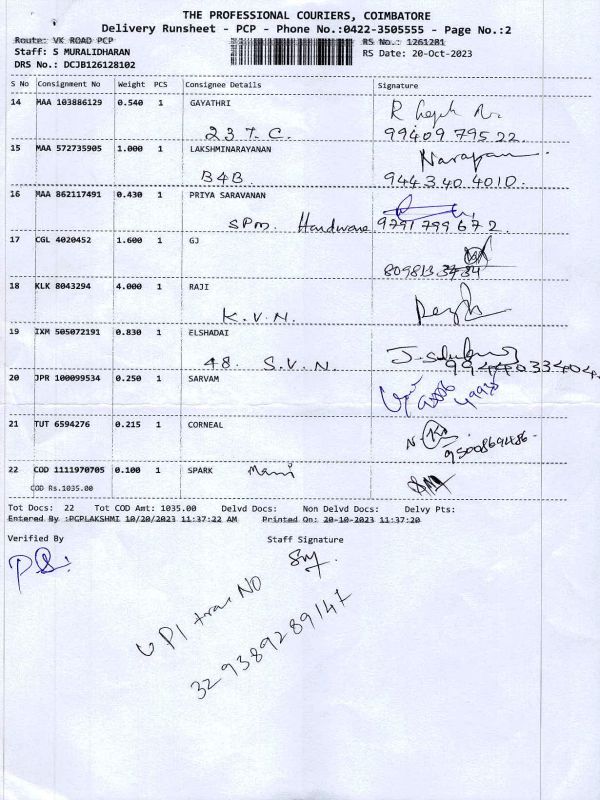 THE PROFESSIONAL COURIERS, COIMBATORE
Delivery Runsheet - PCP - Phone No.:0422-3505555 - Page No.:2
Route: VK ROAD PCP RS No.: 1261281
Staff: S MURALIDHARAN RS Date: 20-Oct-2023
DRS No.: DCJB126128102
S No Consignment No Weight PCS Consignee Details Signature
14 MAA 103886129 0.540 1 GAYATHRI
23 T.C. 99409 795 22.
15 MAA 572735905 1.000 1 LAKSHMINARAYANAN Narayan
B4B 944 3 40 4010.
16 MAA 862117491 0.430 1 PRIYA SARAVANAN
SPM. Hardware 9791 799 672.
17 CGL 4020452 1.600 1 GJ
18 KLK 8043294 4.000 1 RAJI
K.V.N.
19 IXM 505072191 0.830 1 ELSHADAI
48. S.V.N. 9944033404.
20 JPR 100099534 0.250 1 SARVAM
21 TUT 6594276 0.215 1 CORNEAL
9500869486.
22 COD 1111970705 0.100 1 SPARK Mani
COD Rs.1035.00
Tot Docs: 22 Tot COD Amt: 1035.00 Delvd Docs: Non Delvd Docs: Delvy Pts:
Entered By :PCPLAKSHMI 10/20/2023 11:37:22 AM Printed On: 20-10-2023 11:37:20
Verified By Staff Signature
UPI tran NO
329389289147